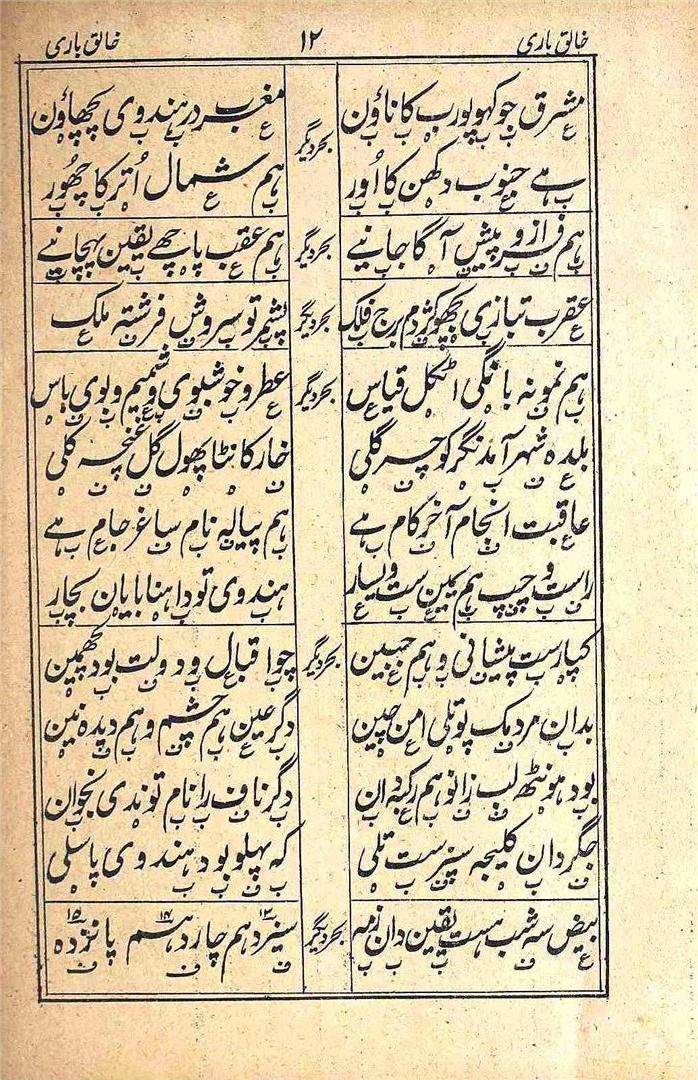 خالق باری ۱۲ خالق باری
مشرق جو کہو پورب کا ناؤں بحر دیگر مغرب در ہندوی پچھاؤں
ہے جنوب دکھن کا اُور ہم شمال اُتر کا چھُور
ہم فراز و پیش آگا جانیے بحر دیگر ہم عقب پاچھے یقین پہچانیے
عقرب تبازی بچھو کژدم برج فلک بحر دیگر پشمر تو سروش فرشتہ ملک
ہم نمونہ بانگی اٹکل قیاس بحر دیگر عطر و خوشبوی و شمیم و بوی باس
بلدہ شہر آمد نگر کوچہ گلی خار کانٹا پھول گل غنچہ کلی
عاقبت انجام آخر کام ہے ہم پیالہ نام ساغر جام ہے
راست و چپ ہم یمین ست و یسار ہندوی تو داہنا بایاں بچار
کپارست پیشانی و ہم جبین بحر دیگر چو اقبال و دولت بود لچھمین
بدان مردمک پوتلی امن چین دگر عین ہم چشم و ہم دیدہ نین
بود ہونٹھ لب زانو ہم رکبہ دان دگر ناف را نام توندی بخوان
جگر دان کلیجہ سپرست تلی کہ پہلو بود ہندوی پاسلی
بیض سہ شب ہست یقین دان ز مہ بحر دیگر سیزدہم چاردہم پانزدہ